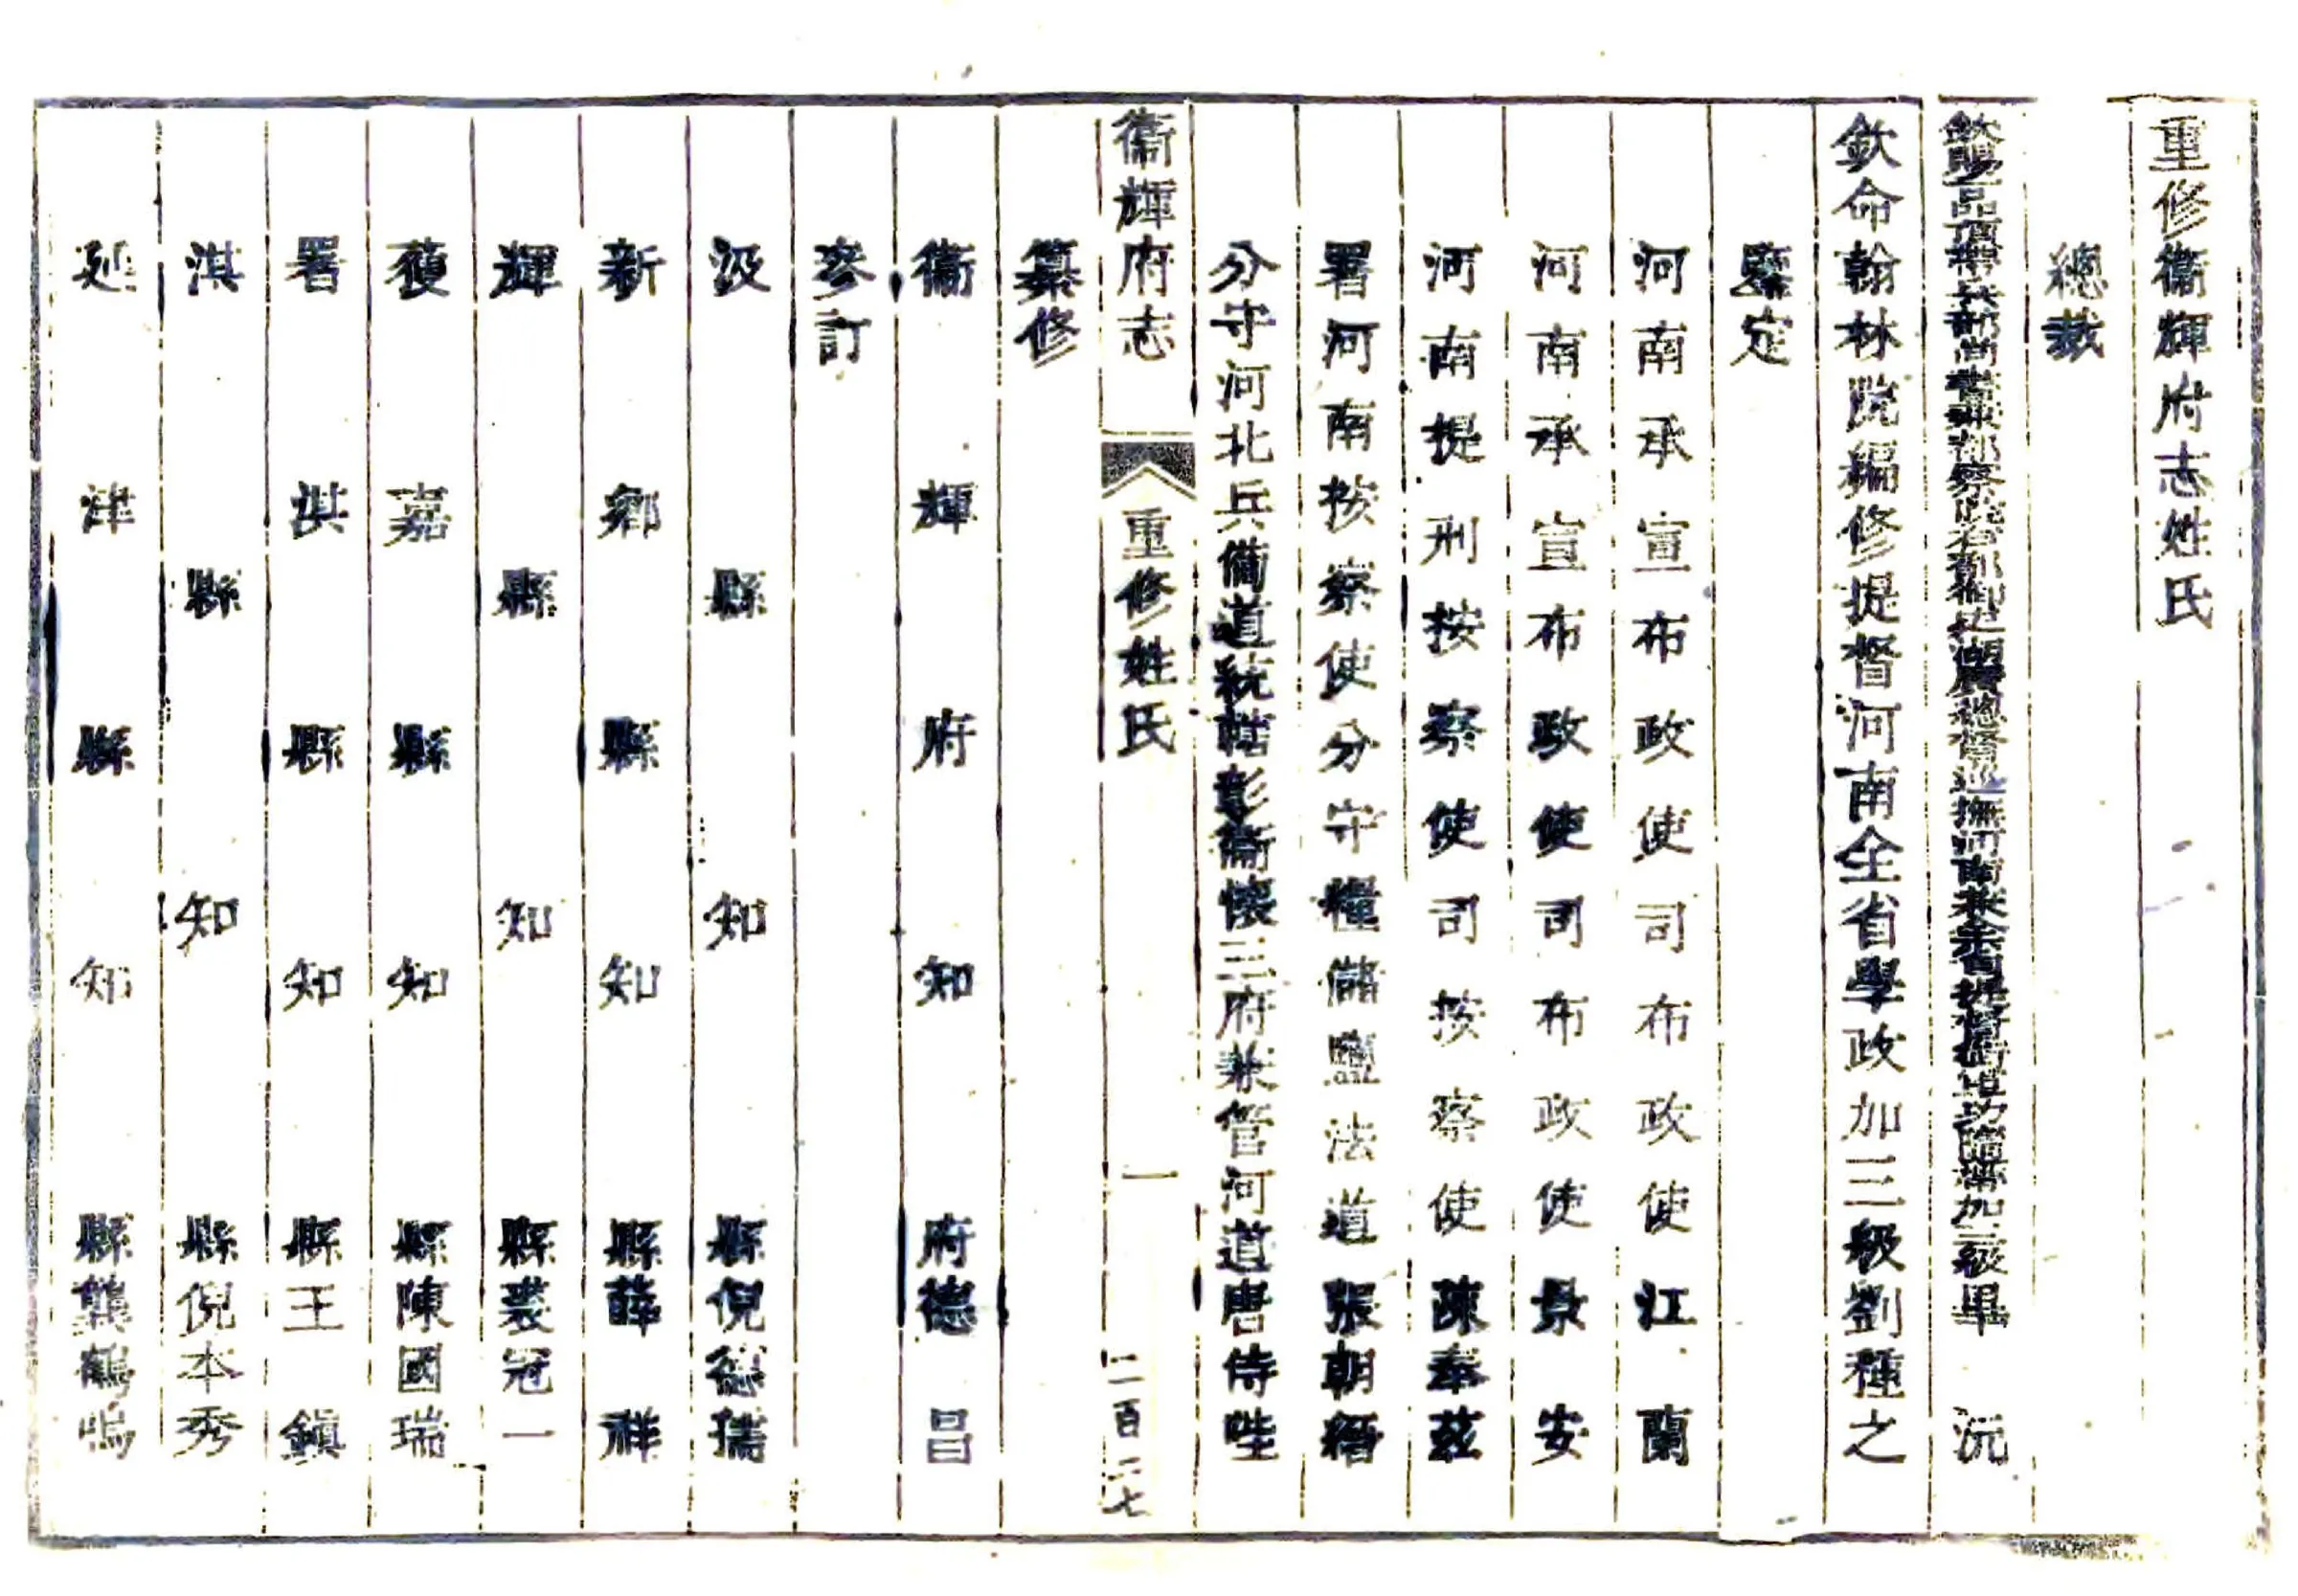 重修衞輝府志姓氏
總裁
欽賜一品頂帶兵部尚書兼都察院右都御史湖廣總督巡撫河南兼全省提督銜軍功隨帶加二級畢沅
欽命翰林院編修提督河南全省學政加三級劉種之
鑒定
河南承宣布政使司布政使江蘭
河南承宣布政使司布政使景安
河南提刑按察使司按察使陳奉茲
署河南按察使分守糧儲鹽法道張朝縉
分守河北兵備道統轄彰衞懷三府兼管河道唐侍陛
衞輝府志
重修姓氏
一
二百二七
纂修
衞輝府知府德昌
參訂
汲縣知縣倪德瑞
新鄉縣知縣薛祥
輝縣知縣裘冠一
獲嘉縣知縣陳國瑞
署淇縣知縣王鎮
淇縣知縣倪本秀
延津縣知縣龔鶴鳴